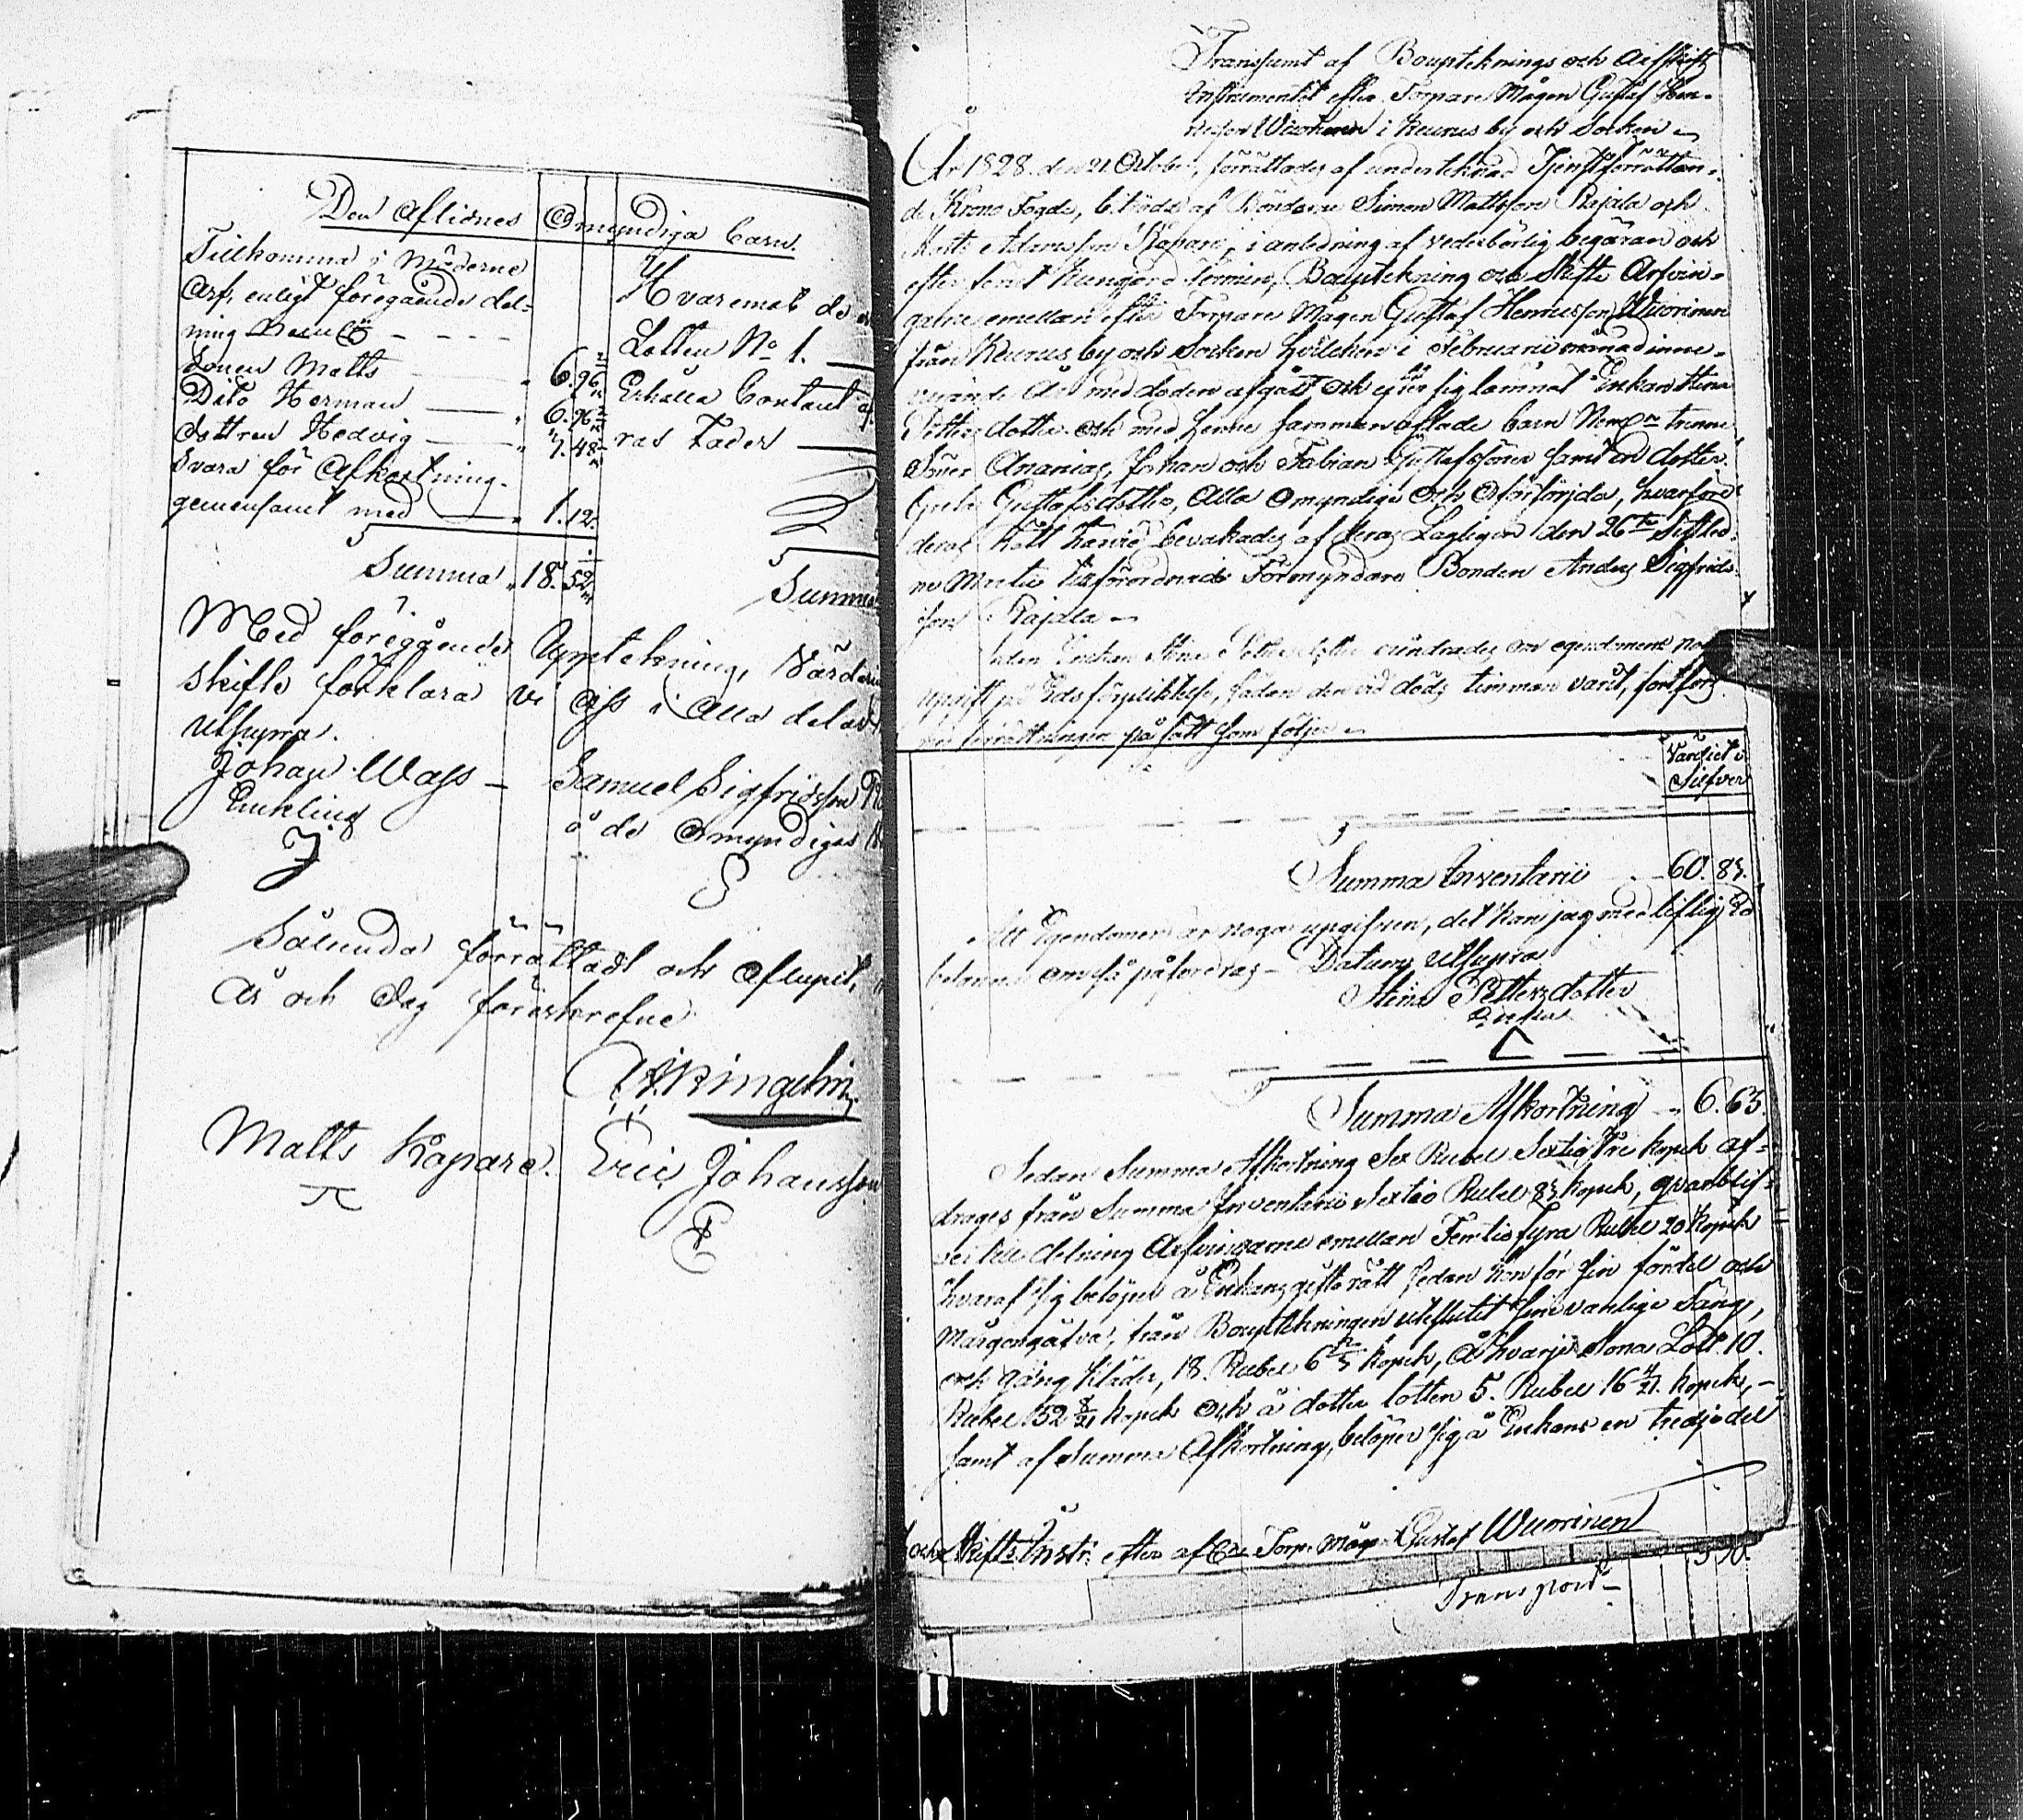 Den Aflidnes Omyndiga barn.
Tillkomma i Möderne
Arf, enligt föregående del-
ning
Sonen Matts 6.96
Dito Herman 6.96
dottren Hedvig 3.48
Svara för Afkortning
gemensamt med 1.12.
Summa 18.52
Hvaremot de
Lotten No 1.
Erhålla Contant af
ras Fader
Summa
Med föregående Uppteckning, Värderi
skifte förklara vi oss i alla delar
Utsupra.
Johan Wass – Samuel Sigfridsson
Enkling å de Omyndigas
J S
Sålunda förrättadt och aflupit,
År och dag föreskrefne
Matts Kåpare. Eric Johansson
Transumt af Bouptecknings och Arfskifts
Instrumentet efter Torpare Mågen Gustaf Hen-
ricsson Wuorinen i Keurus by och Socken
År 1828 den 21 October, förrättades af undertecknad Tjenstförrättan-
de Krono Fogde, biträdd af Bönderne Simon Mattsson Rajala och
Matts Adamsson Kåpare, i anledning af vederbörlig begäran och
efter förut kungjord Termin, Bouptekning och Skifte Arfvin-
garne emellan efter Torpare Mågen Gustaf Henricsson Wuorinen
från Keurus by och Socken hvilcken i Februarii månad inne-
varande År med döden afgått, och efter sig lämnat Enkan Stina
Pettersdotter och med henne sammanaflade barn trenne
Söner Ananias, Johan och Fabian Gustafssöner samt en dotter
Greta Gustafsdotter, Alla Omyndige och Oförsörjda, hvarföre
deras Rätt härvid bevakades af deras Lagligen den 26te sistled-
ne Martii tillförordnade Förmyndare Bonden Anders Sigfrids-
son Rajala
Enkan Stina Pettersdotter om egendomens
uppgift på Eds förpliktelse, sådan den vid döds timman varit, fortfors
med förrättningen på sätt som följer
Värdiet i
Silfver
Summa Inventarii 60.83.
Att Egendomen är noga uppgifven, det kan jag med liflig Ed
om så påfordras – Datum Utsupra
Stina Pettersdotter
Enka
Summa Afkortning 6.63.
Sedan Summa Afkortning Sex Rubel Sextiotre kopek af-
drages från Summa Inventarii Sextio Rubel 83 kopek, qvarblif-
ver till delning Arfvingarne emellan Femtiofyra Rubel 20 kopek
hvaraf sig belöper å Enkans giftorätt sedan hon för sin fördel och
Morgongåfva, från Bouptekningen uteslutit sine vanlige Säng,
och gång kläder, 18. Rubel 6 2/3 kopek, å hvarje Sona Lott 10.
Rubel 32 8/21 kopek och å dotter lotten 5. Rubel 16 4/21 kopek, –
samt af Summa Afkortning, belöper sig å Enkans en tredjedel
och Skifts Instr. efter afl. Torp. Mågen Gustaf Wuorinen
Transport